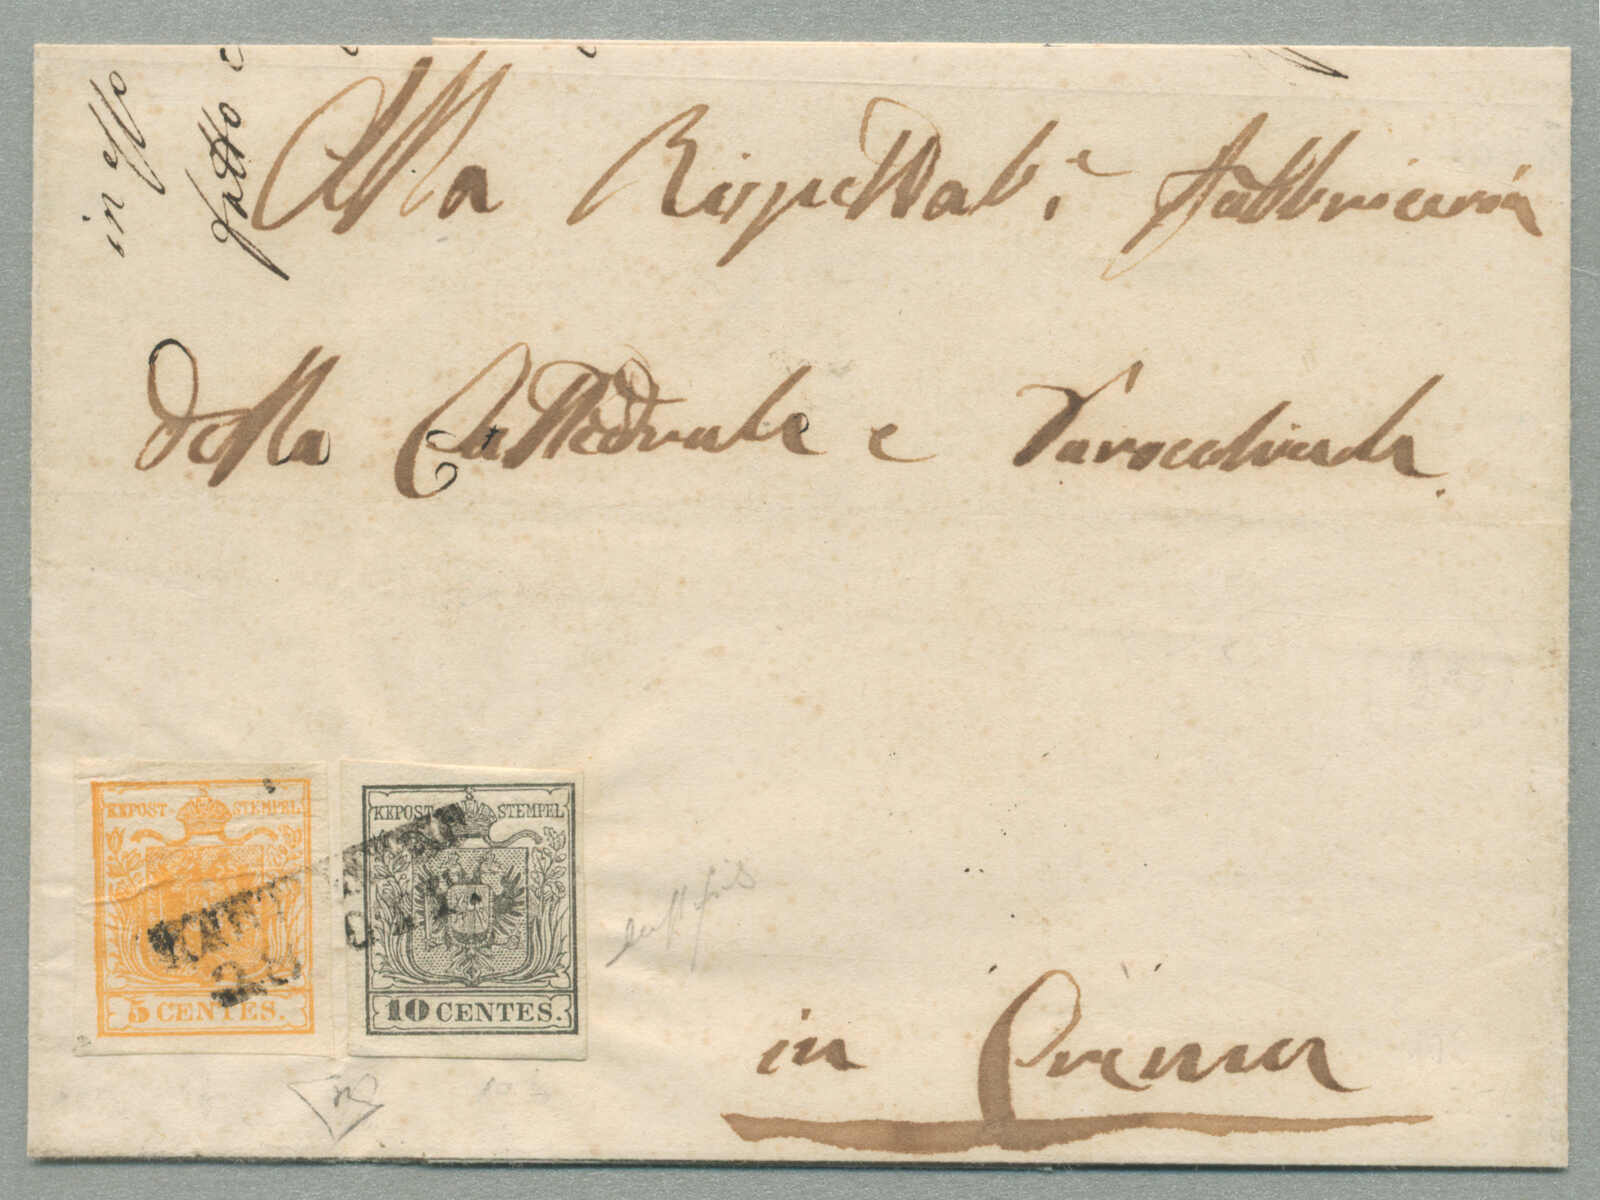 in esso
fatto e
Alla Rispettab.e Fabbriceria
della Cattedrale e Parocchiale.
KKPOST-STEMPEL
5 CENTES.
KKPOST-STEMPEL
10 CENTES.
28
in Crema